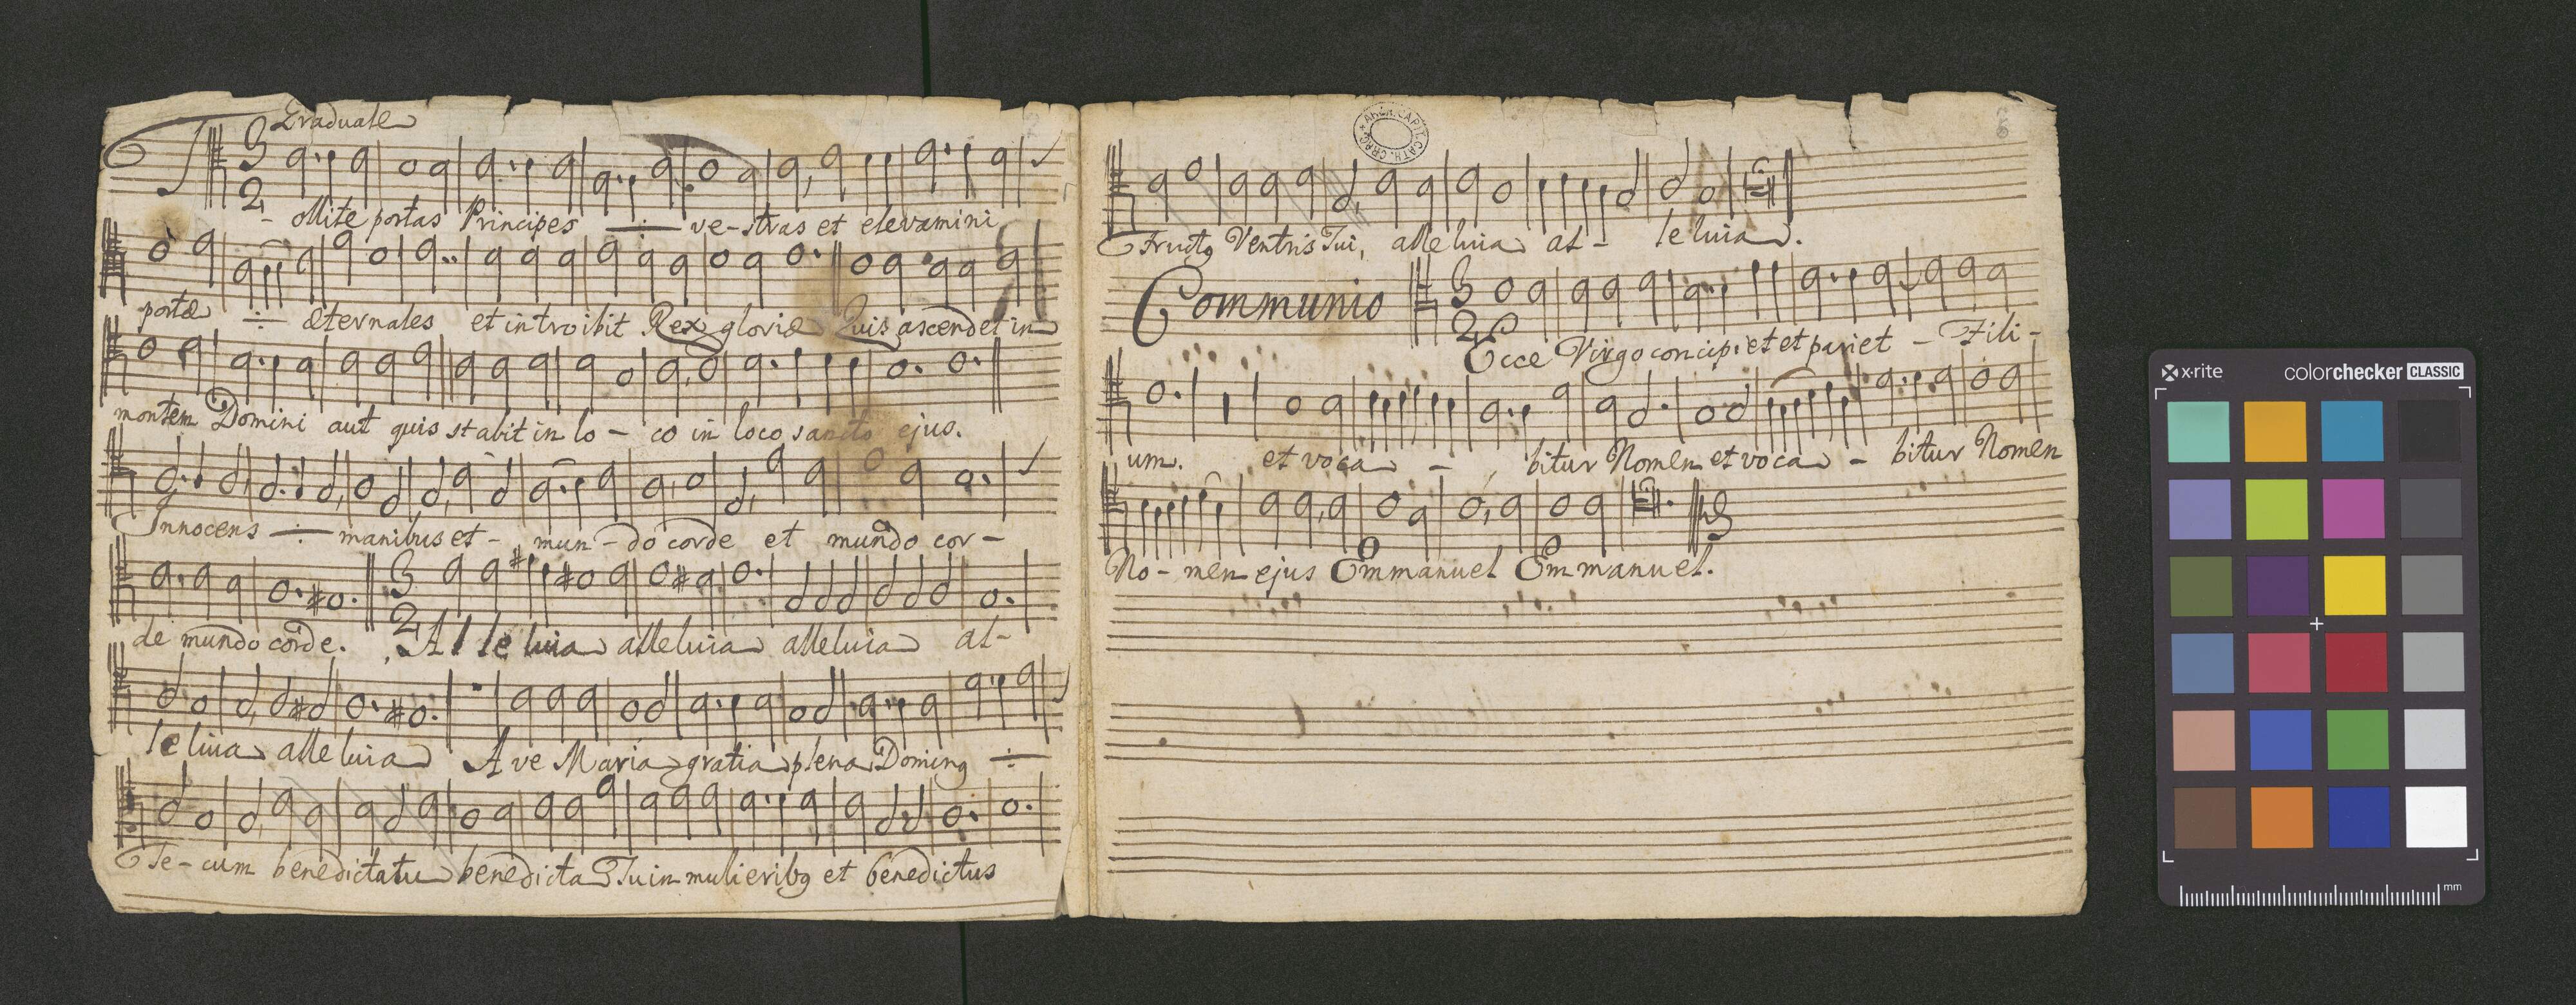 Graduale
3
2
T - ollite portas Principes ÷ ve-stras et elevamini
portæ ÷ æternales et introibit Rex gloriæ Quis ascendet in
montem Domini aut quis stabit in lo - co in loco sancto ejus.
Innocens ÷ manibus et - mun - do corde et mundo cor -
3
2
de mundo corde. Alleluia alleluia alleluia al-
leluia alleluia Ave Maria gratia plena Doming ÷
Te-cum benedictatu benedicta Tu in mulieribg et benedictus
ARCH. CAPIT. CATH. CRAC.
Fructg Ventris Tui, alleluia al - leluia.
Communio
3
2
Ecce Virgo concipiet et pariet - Fili -
um. et voca - bitur Nomen et voca - bitur Nomen
No - men ejus Emmanuel Emmanuel.
x-rite
colorchecker CLASSIC
mm